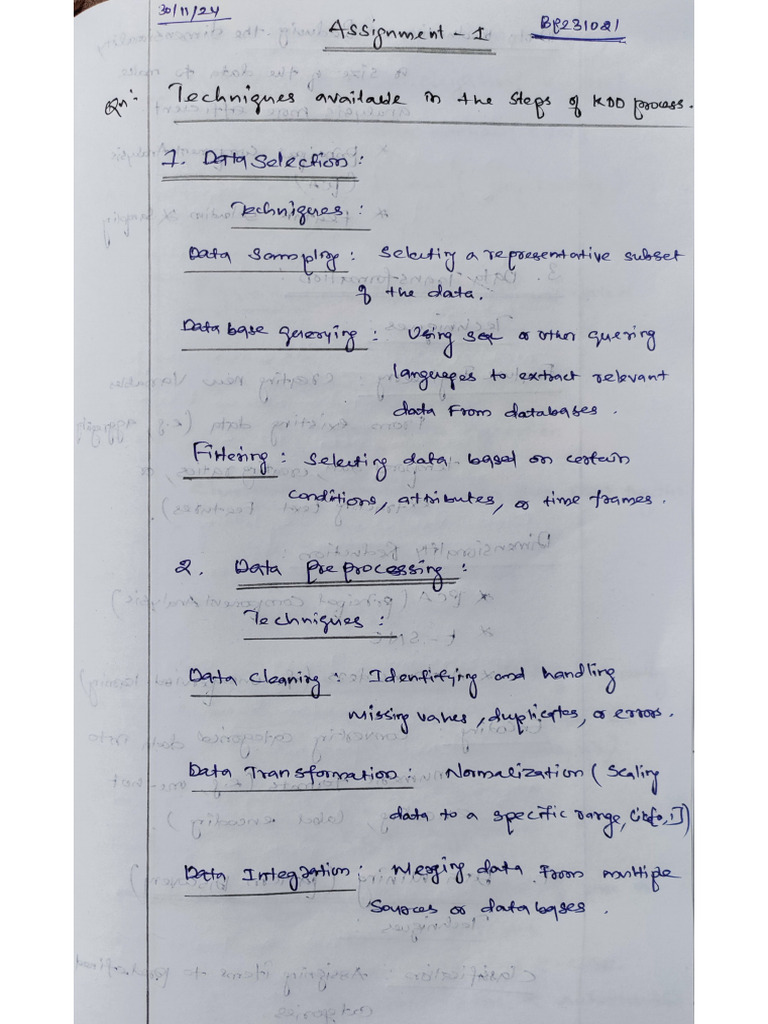 30/11/24
Assignment - 1
BP231021
Qn: Techniques available in the steps of KDD process.
1. Data Selection :
Techniques :
Data Sampling : Selecting a representative subset
of the data.
Database querying : Using SQL or other quering
languages to extract relevant
data from databases.
Filtering : Selecting data based on certain
conditions, attributes, or time frames.
2. Data Preprocessing :
Techniques :
Data Cleaning : Identifying and handling
missing values, duplicates, or errors.
Data Transformation : Normalization ( Scaling
data to a specific range, [0,1])
Data Integration : Merging data from multiple
Sources or databases.